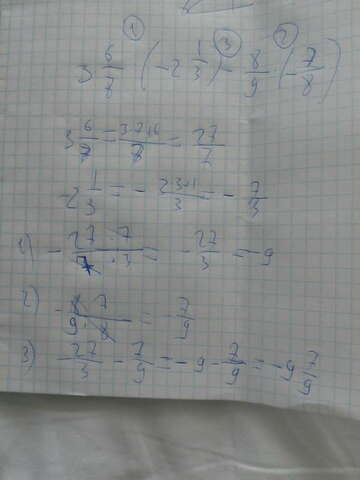 ① ③ ②
3 6/7 · (-2 1/3) - 8/9 · (-7/8)
3 6/7 = 3·7+6/7 = 27/7
-2 1/3 = - 2·3+1/3 = - 7/3
1) - 27·7/7·3 = - 27/3 = -9
2) - 8·7/9·8 = - 7/9
3) 27/3 - 7/9 = -9 - 7/9 = -9 7/9